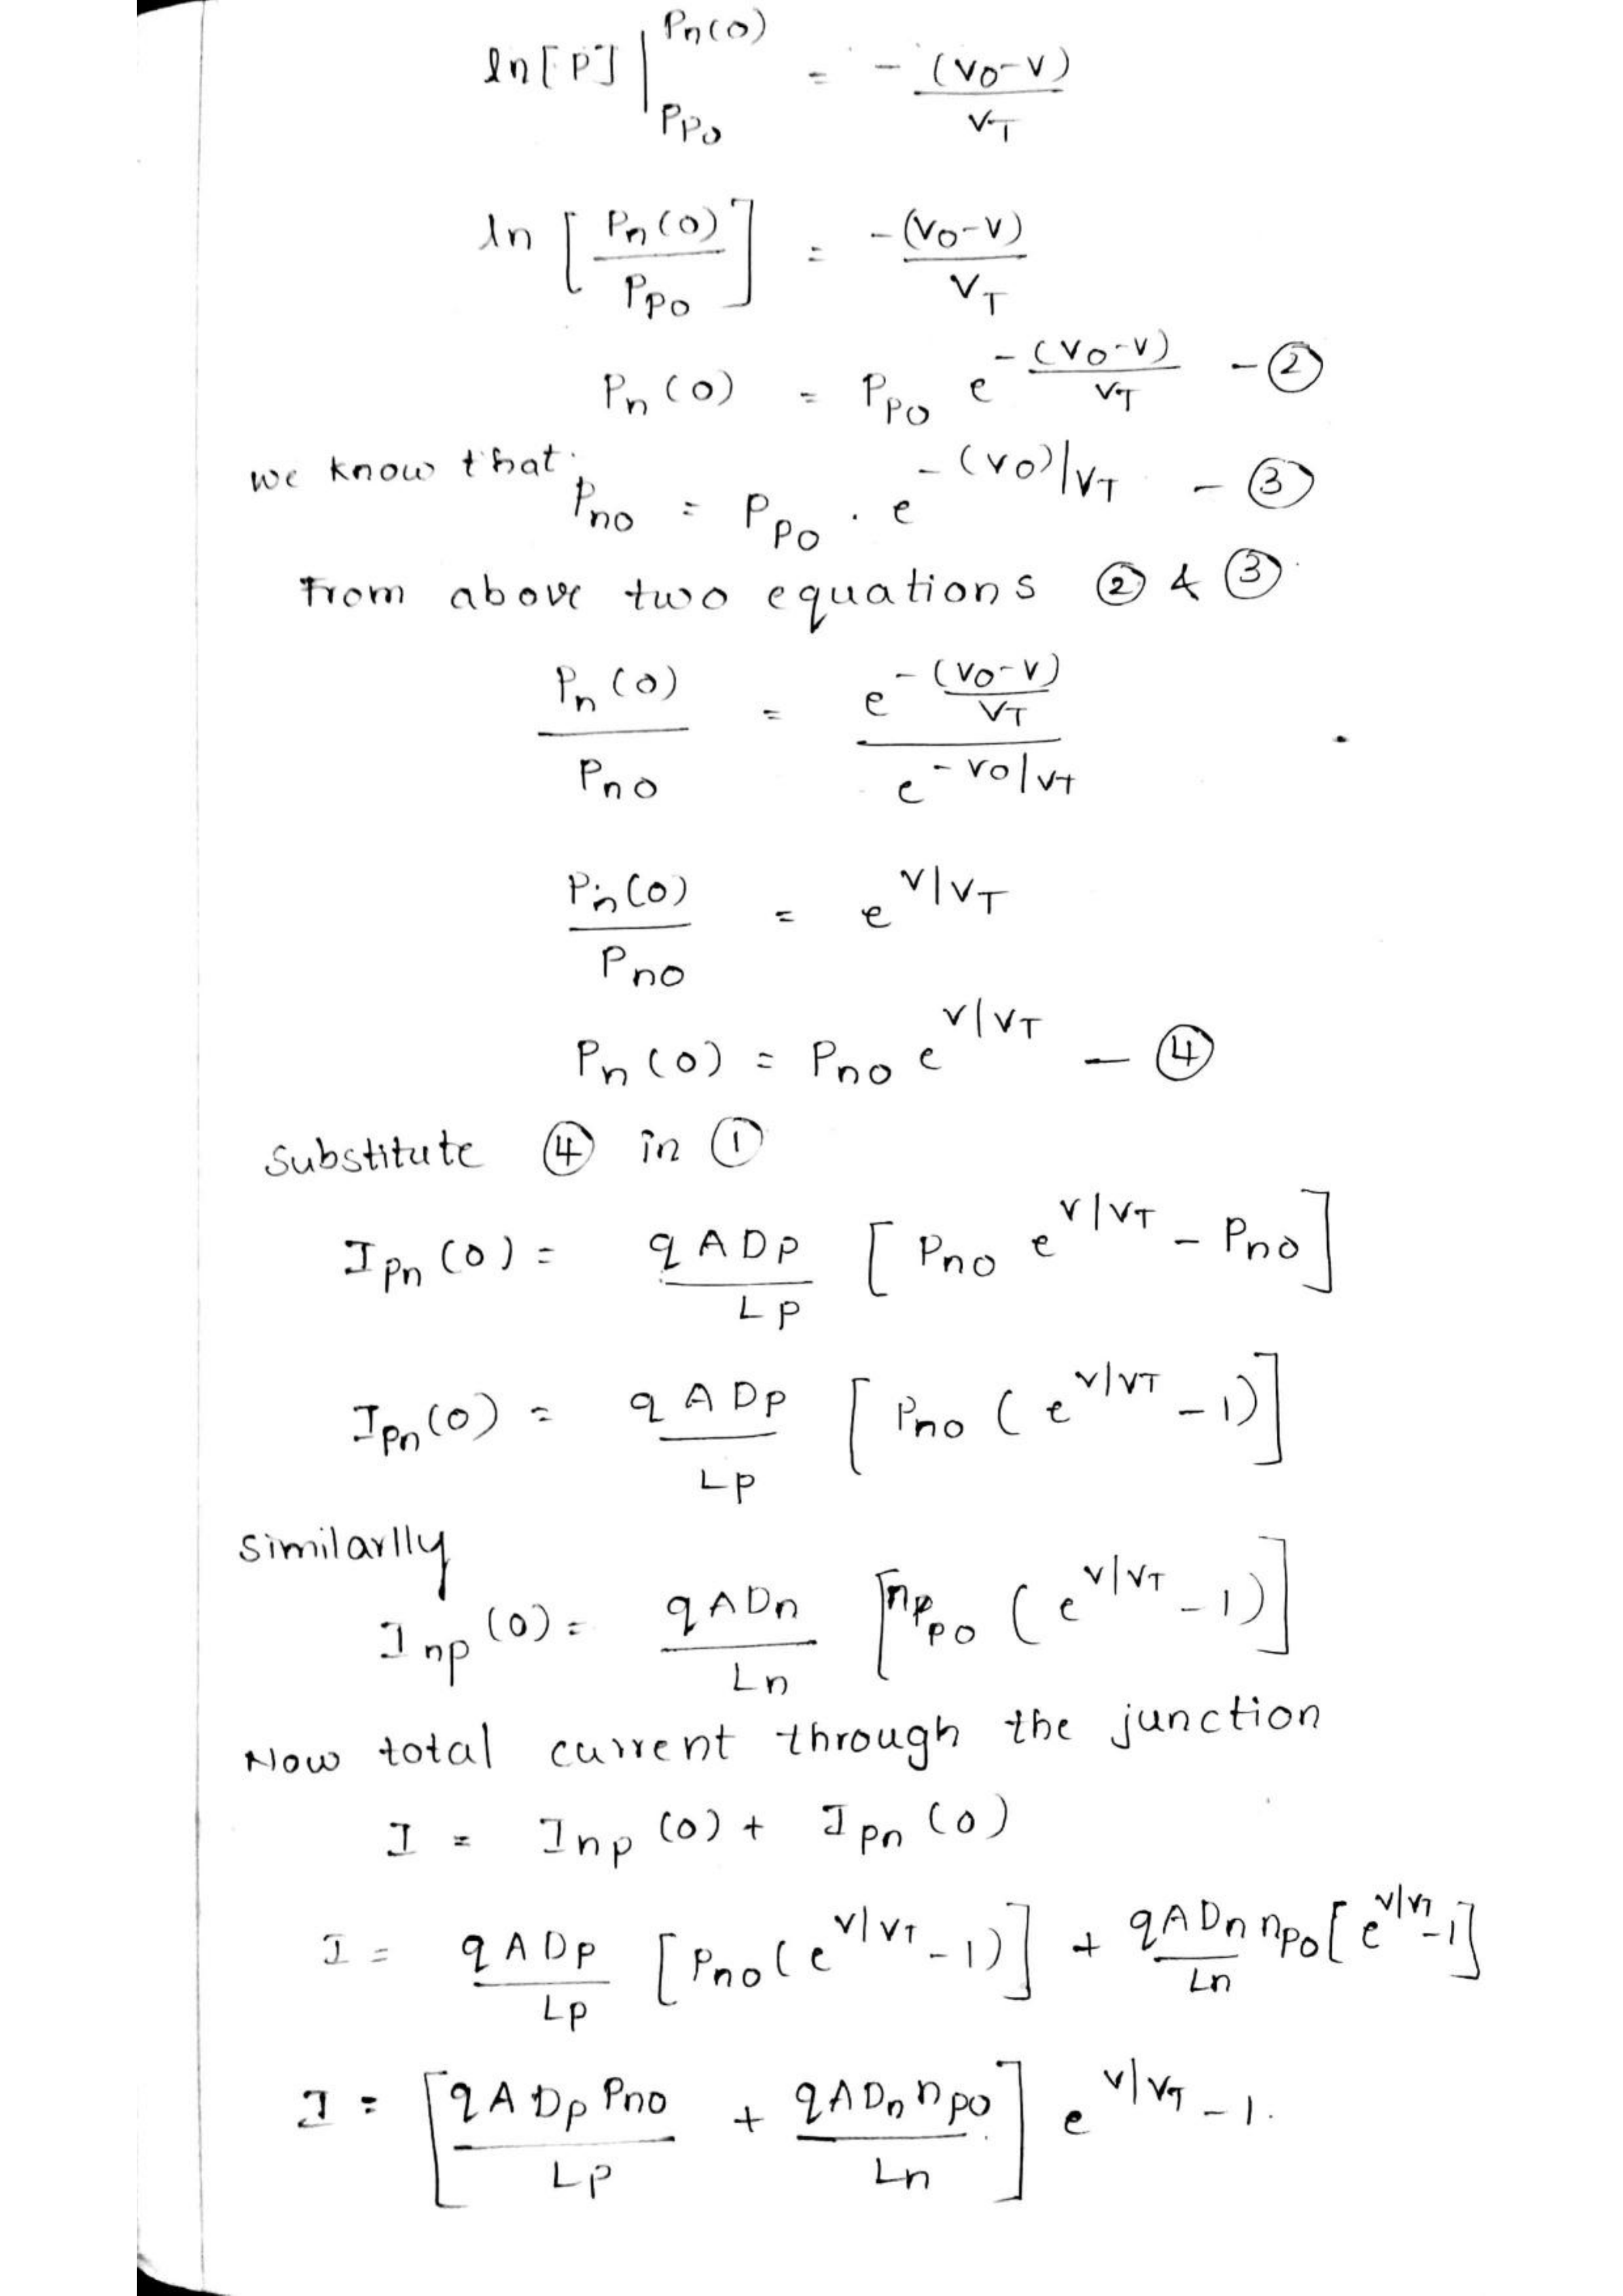 ln[P] |_{Ppo}^{Pn(0)} = - (Vo-V)/VT
ln [Pn(0)/Ppo] = -(Vo-V)/VT
Pn(0) = Ppo e^{-(Vo-V)/VT} - ②
we know that.
Pno = Ppo . e^{-(Vo)/VT} - ③
From above two equations ② & ③
Pn(0)/Pno = e^{-(Vo-V)/VT} / e^{-Vo/VT}
Pn(0)/Pno = e^{V/VT}
Pn(0) = Pno e^{V/VT} - ④
Substitute ④ in ①
Ipn(0) = qADp/Lp [Pno e^{V/VT} - Pno]
Ipn(0) = qADp/Lp [Pno (e^{V/VT} - 1)]
Similarlly
Inp(0) = qADn/Ln [npo (e^{V/VT} - 1)]
Now total current through the junction
I = Inp(0) + Ipn(0)
I = qADp/Lp [Pno(e^{V/VT} - 1)] + qADn/Ln npo[e^{V/VT} - 1]
I = [qADp Pno/Lp + qADn npo/Ln] e^{V/VT} - 1.